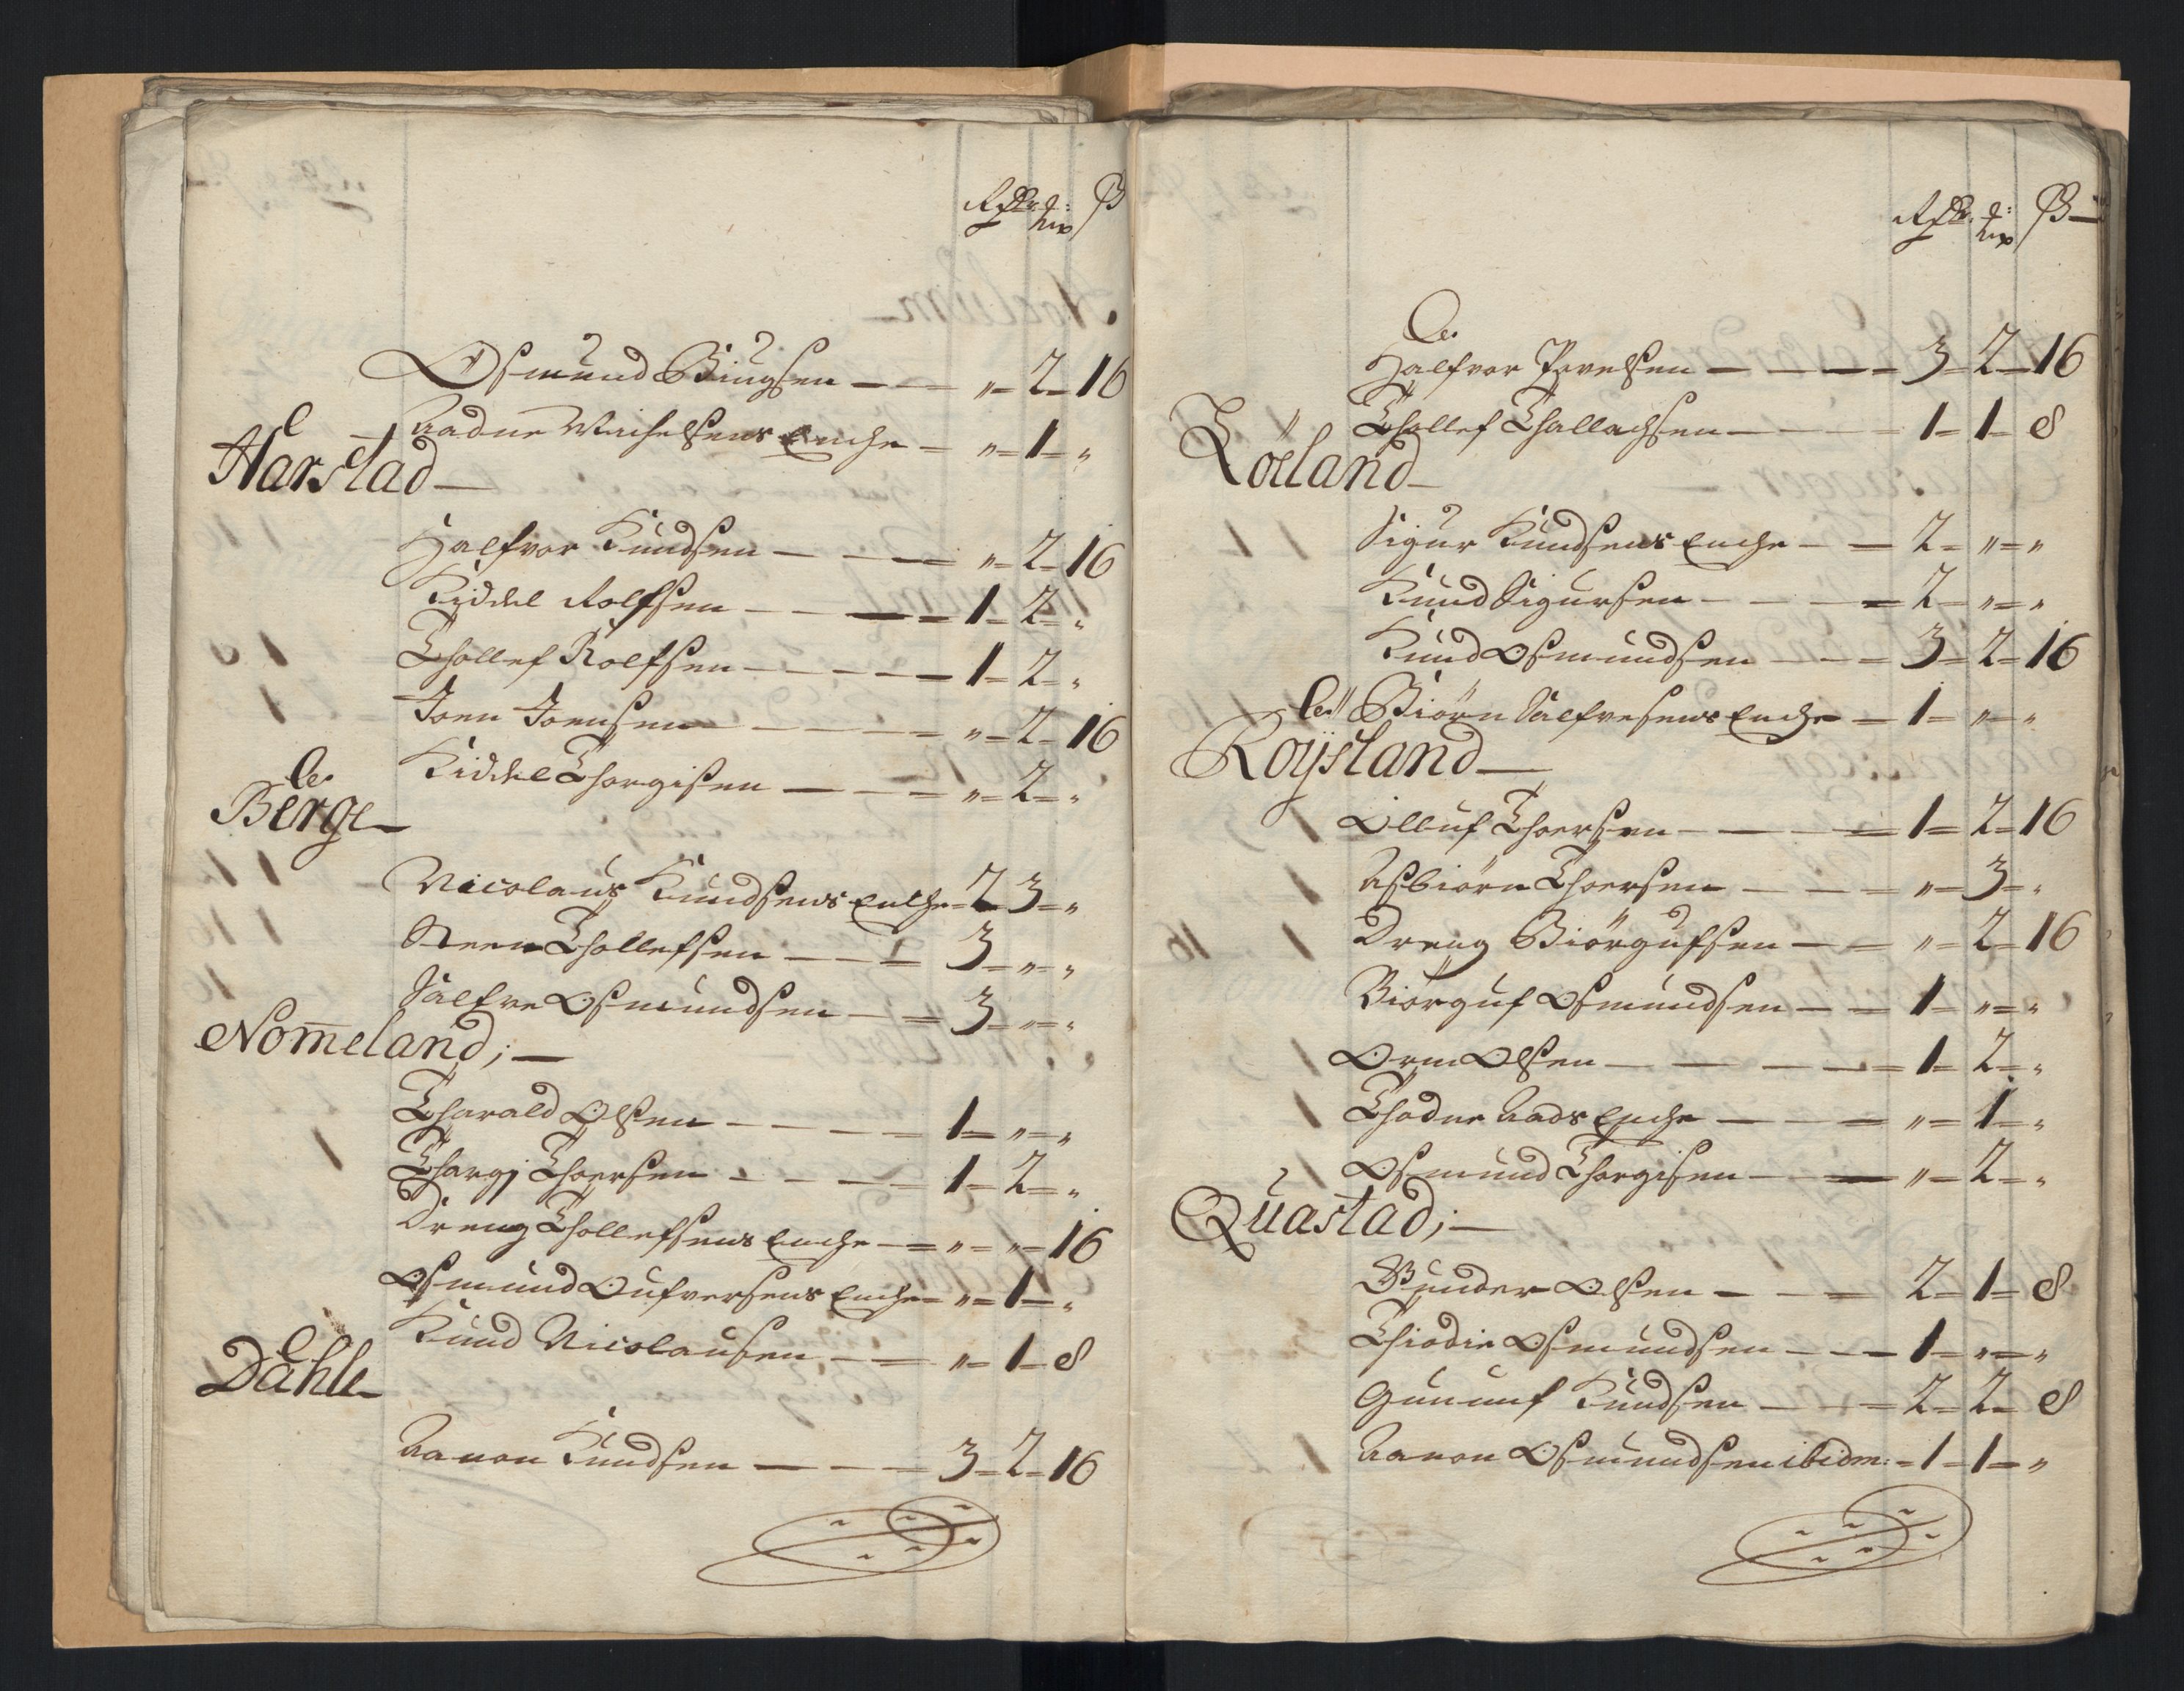 Rdr. ort ß
Osmund Biugsen — — „ = 2 = 16
Aadne Michelsens Enche — „ = 1 = „
Harstad —
Halfvor Knudsen — — — „ = 2 = 16
Kiddel Rolfsen — — — 1 = 2 = „
Thollef Rolfsen — — — 1 = 2 = „
Joen Joensen — — — „ = 2 = 16
Kiddel Thorgisen — — — „ = 2 = „
Berge —
Nicolaus Knudsens Enche = 2 3 = „
Steen Thollefsen — — 3 = „ = „
Salfve Osmundsen — = 3 = „ = „
Nom̄eland; —
Tharald Olsen — — — 1 = „ = „
Thorgj Thoersen — — — 1 = 2 = „
Dreng Thollefsens Enche — = „ = „ = 16
Osmund Oufversens Enche = „ = 1 = „
Knud Nicolausen — — „ = 1 = 8
Dahle —
Aanon Knudsen — — — 3 = 2 = 16
Rdr. ort ß
Halfvor Povelsen — — — 3 = 2 = 16
Thollef Thallachsen — — 1 = 1 = 8
Löeland —
Sigur Knudsens Enche — = 2 = „ = „
Knud Sigursen — — — 2 = „ = „
Knud Osmundsen — — = 3 = 2 = 16
Biörn Salfvesens Enche — 1 = „ = „
Roÿsland —
Olluf Thoersen — — — 1 = 2 = 16
Asbiörn Thoersen — — — „ = 3 = „
Dreng Biörgufsen — — „ = 2 = 16
Biörguf Osmundsen — — 1 = „ = „
Orm Olsen — — — — 1 = 2 = „
Thodne Aads Enche — — — „ = 1 = „
Osmund Thorgisen — — „ = 2 = „
Quastad; —
Gunder Olsen — — = 2 = 1 = 8
Thiodie Osmundsen — — 1 = „ = „
Gununf Knudsen — — = 2 = 2 = 8
Aanon Osmundsen ibidm: = 1 = 1 = „